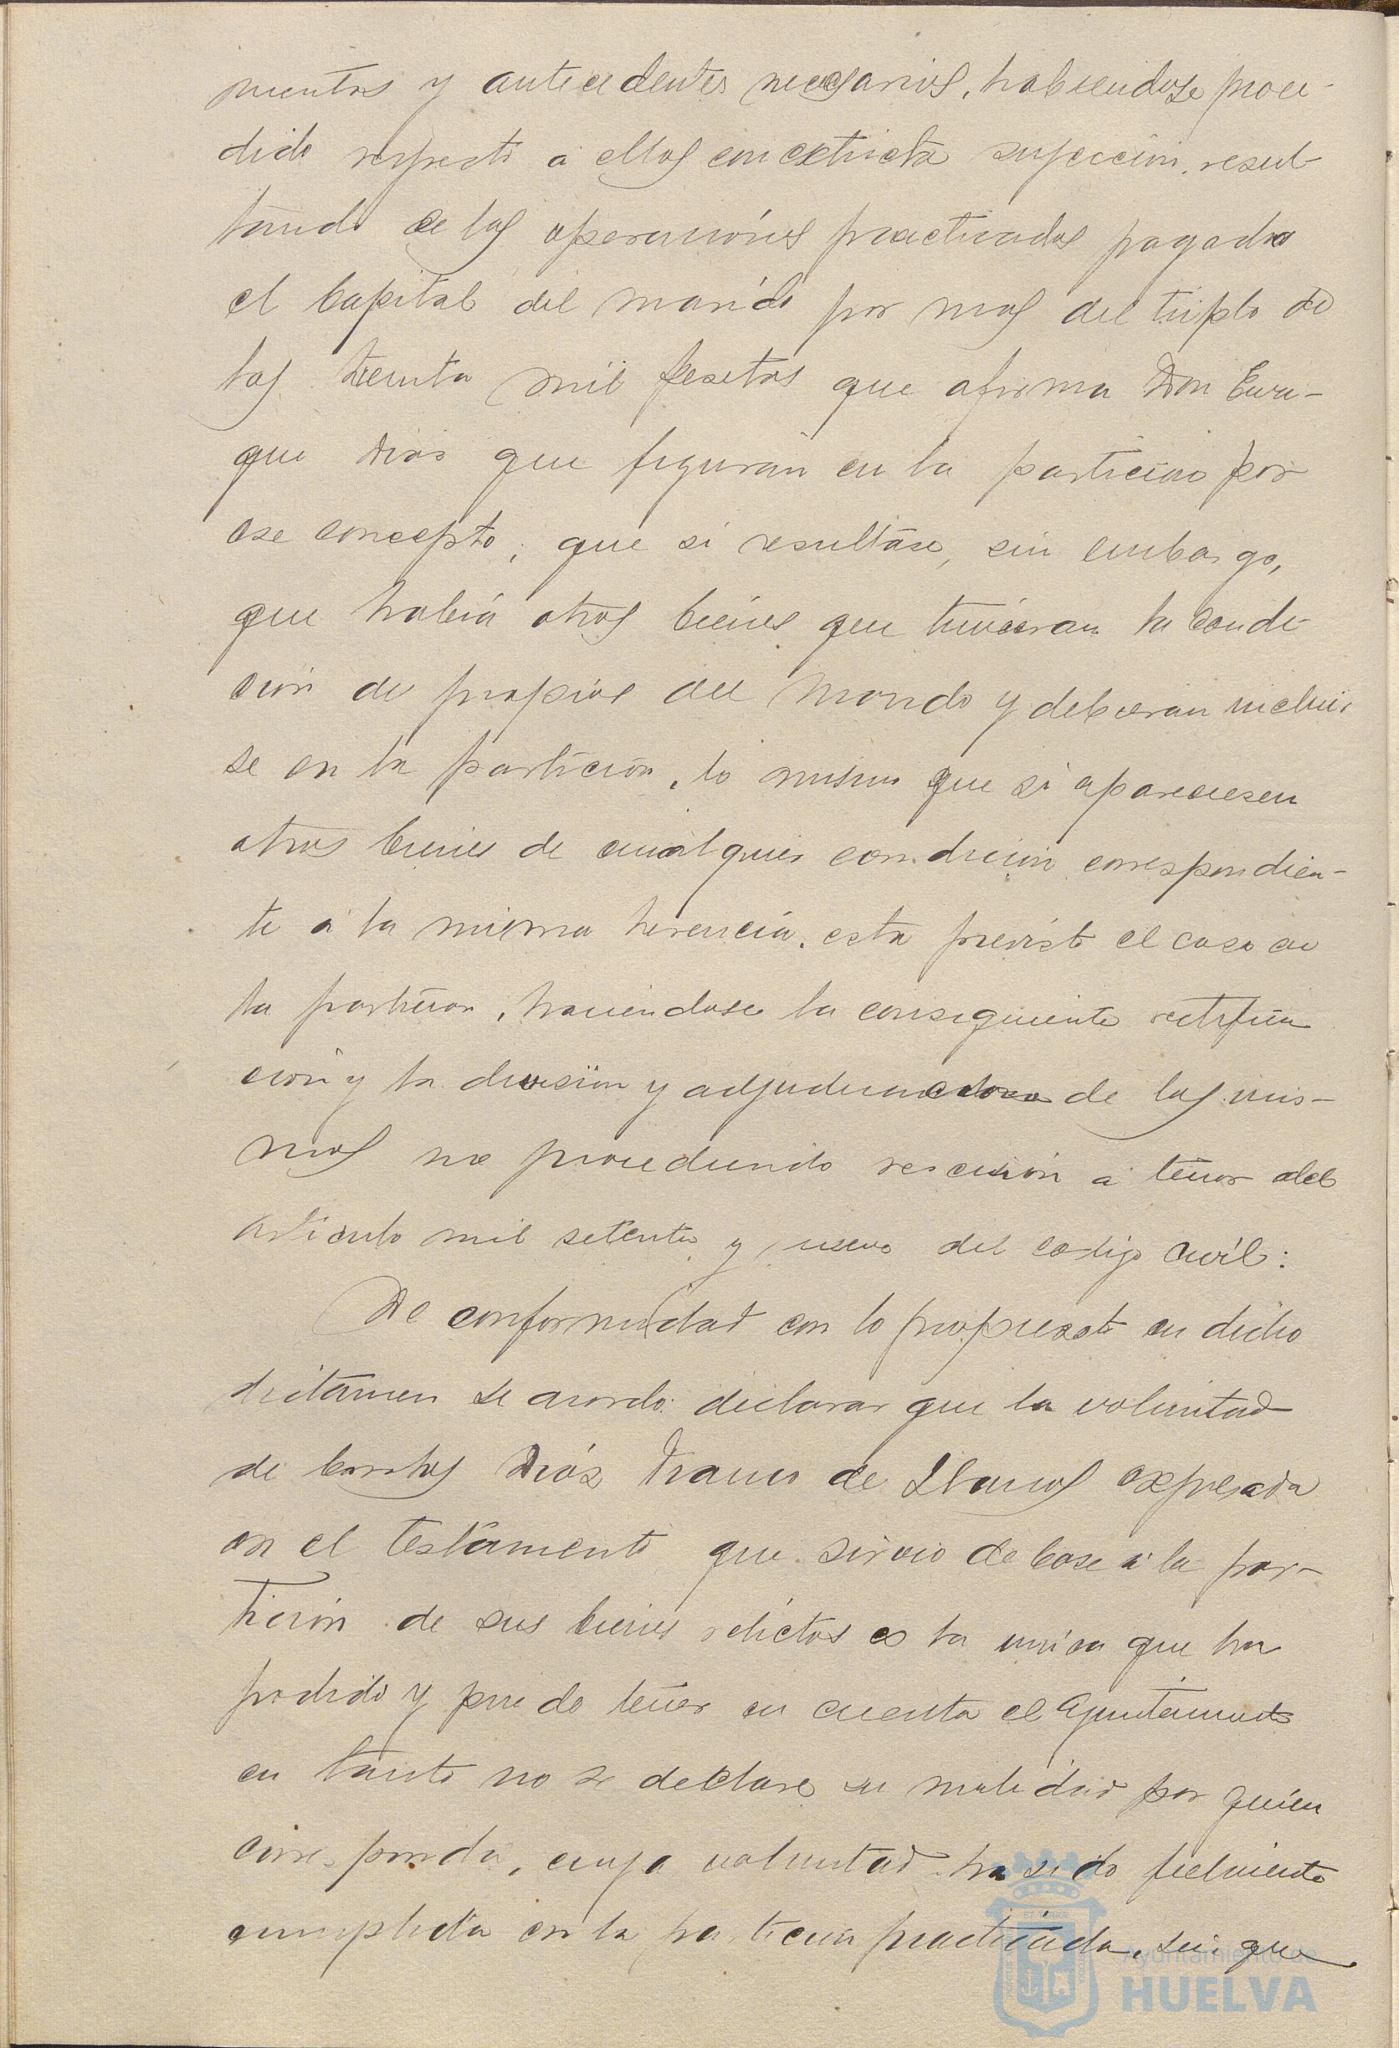 mentos y antecedentes necesarios, habiendose proce-
dido respecto a ellos con extricta sujeccion, resul-
tando de las operaciónes practicadas pagado
el Capital del marido por mas del triplo de
las treinta mil pesetas que afirma Don Enri-
que Dias que figuran en la particion por
ese concepto; que si resultase, sin embargo,
que habia otros bienes que tuvieran la condi-
ción de propios del marido y debieran incluir
se en la particion, lo mismo que si apareciesen
otros bienes de cualquier condicion correspondien-
te a la misma herencia, esta previsto el caso en
la particion, haciendose la consiguiente rectifica
ción y la division y adjudicacion de los mis-
mos no procediendo rescisión a tenor del
articulo mil setenta y nueve del codigo civil:
De conformidad con lo propuesto en dicho
dictamen se acordo: declarar que la voluntad
de Carlos Diáz Franco de Llanos expresada
en el testamento que sirvio de base a la par-
tición de sus bienes relictos es la unica que ha
podido y puede tener en cuenta el Ayuntamiento
en tanto no se declare su nulidad por quien
corresponda, cuya voluntad ha sido fielmente
cumplida en la particion practicada, sin que
Ayuntamiento de
HUELVA